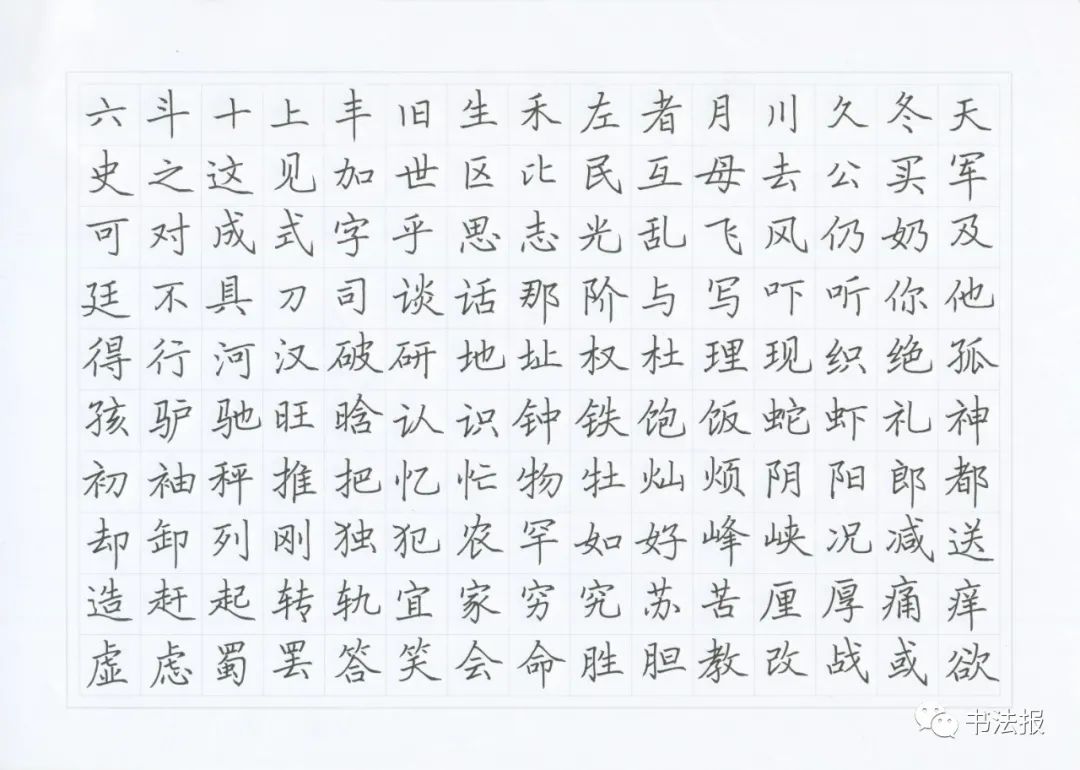 六斗十上丰旧生禾左者月川久冬天
史之这见加世区比民互母去公买军
可对成式字乎思志光乱飞风仍奶及
廷不具刀司谈话那阶与写吓听你他
得行河汉破研地址权杜理现织绝孤
孩驴驰旺晗认识钟铁饱饭蛇虾礼神
初袖秤推把忆忙物牡灿烦阴阳郎都
却卸列刚独犯农罕如好峰峡况减送
造赶起转轨宜家穷究苏苦厘厚痛痒
虚虑蜀罢答笑会命胜胆教改战或欲
书法报